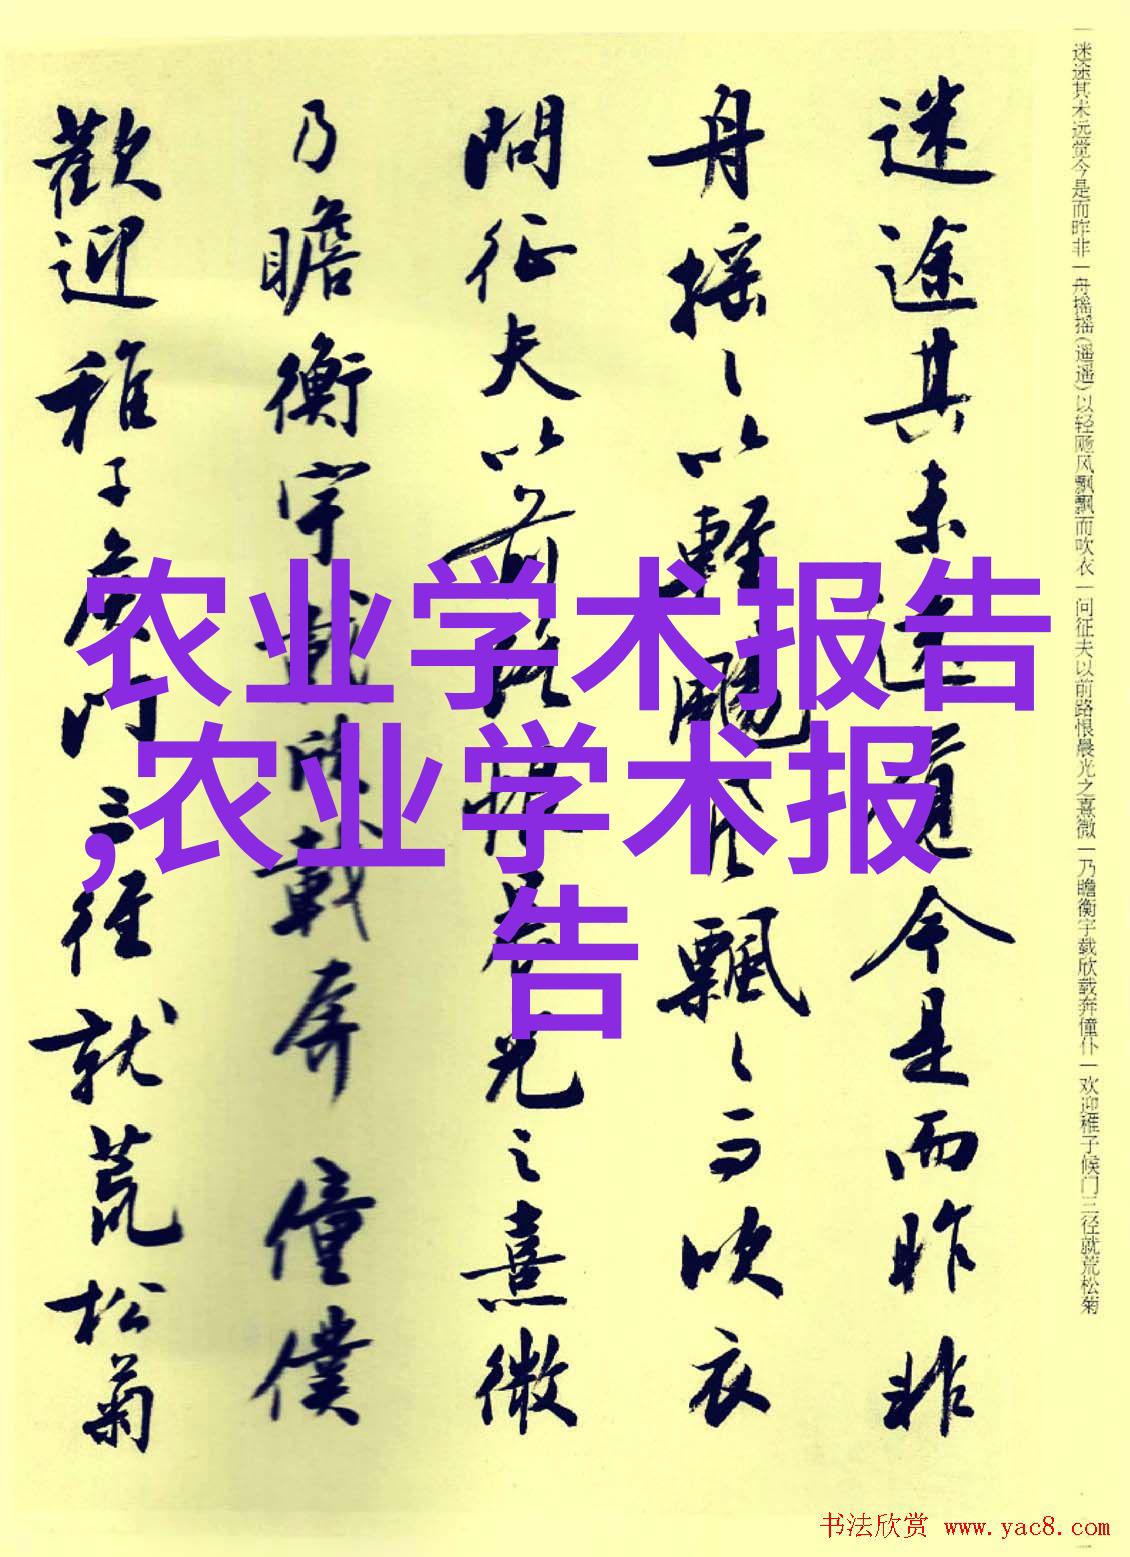 一迷途其未远觉今是而昨非一舟摇摇(遥遥)以轻飏风飘飘而吹衣一问征夫以前路恨晨光之熹微一乃瞻衡宇载欣载奔僮仆一欢迎稚子候门三径就荒松菊
迷途其未遠覺今是而昨非
舟摇〻以輕颺風飄〻而吹衣
問征夫以前路恨晨光之熹微
乃瞻衡宇載欣載奔僮僕
歡迎稚子候門三徑就荒松菊
农业学术报告
,农业学术报
告
书法欣赏 www.yac8.com